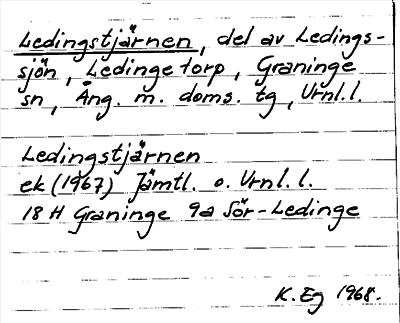 Ledingstjärnen, del av Ledings-
sjön, Ledinge torp, Graninge
sn, Ång. m. doms. tg, Vrnl.l.
Ledingstjärnen
ek (1967) Jämtl. o. Vrnl. l.
18 H Graninge 9a Sör-Ledinge
K. Eg 1968.